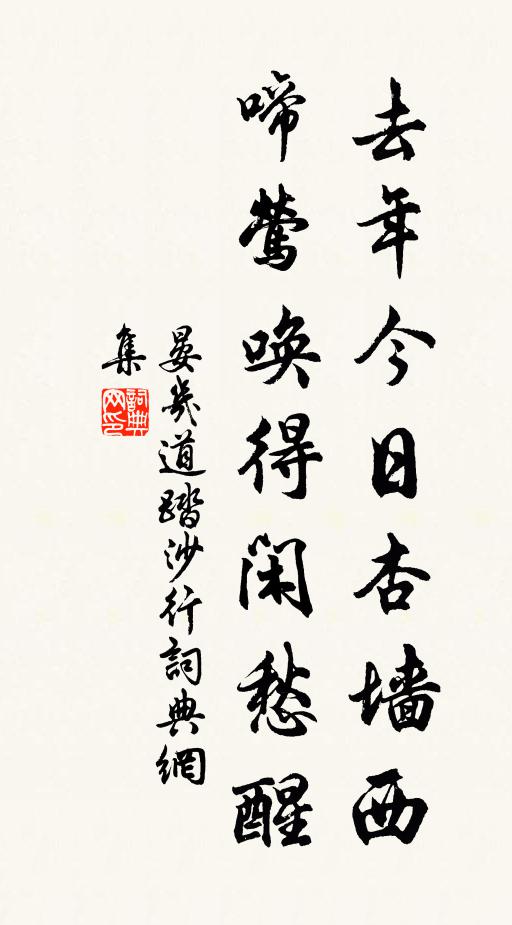 去年今日杏墙西
啼莺唤得闲愁醒
晏幾道踏沙行詞典網
集
詞典
网印